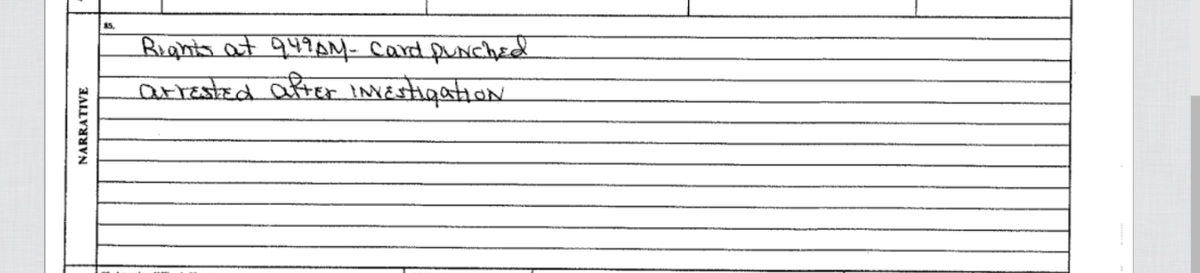 85.
Rights at 949AM - Card punched
arrested after investigation
NARRATIVE